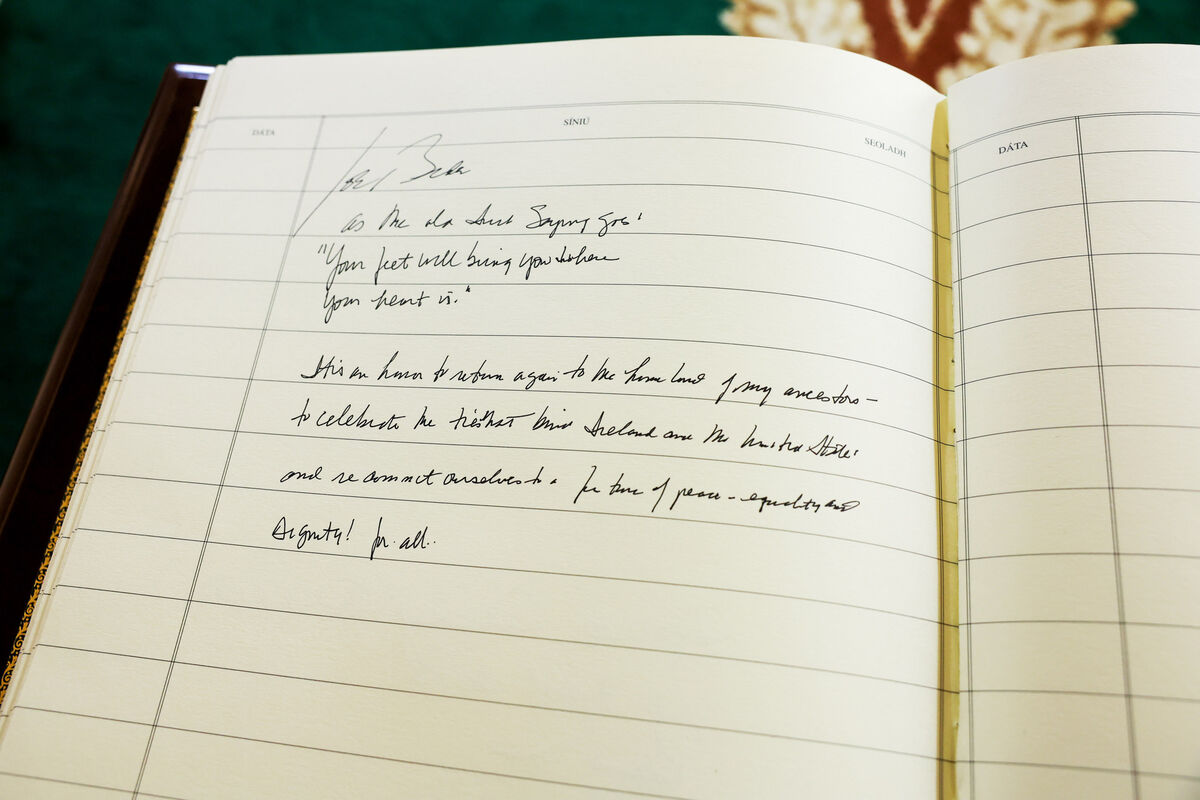 DÁTA SÍNIÚ SEOLADH DÁTA
Joe Biden
as the old Irish Saying goes:
"Your feet will bring you to where
your heart is."
It is an honor to return again to the home land of my ancestors -
to celebrate the ties that bind Ireland and the United States
and recommit ourselves to a future of peace - equality and
Dignity! for all..